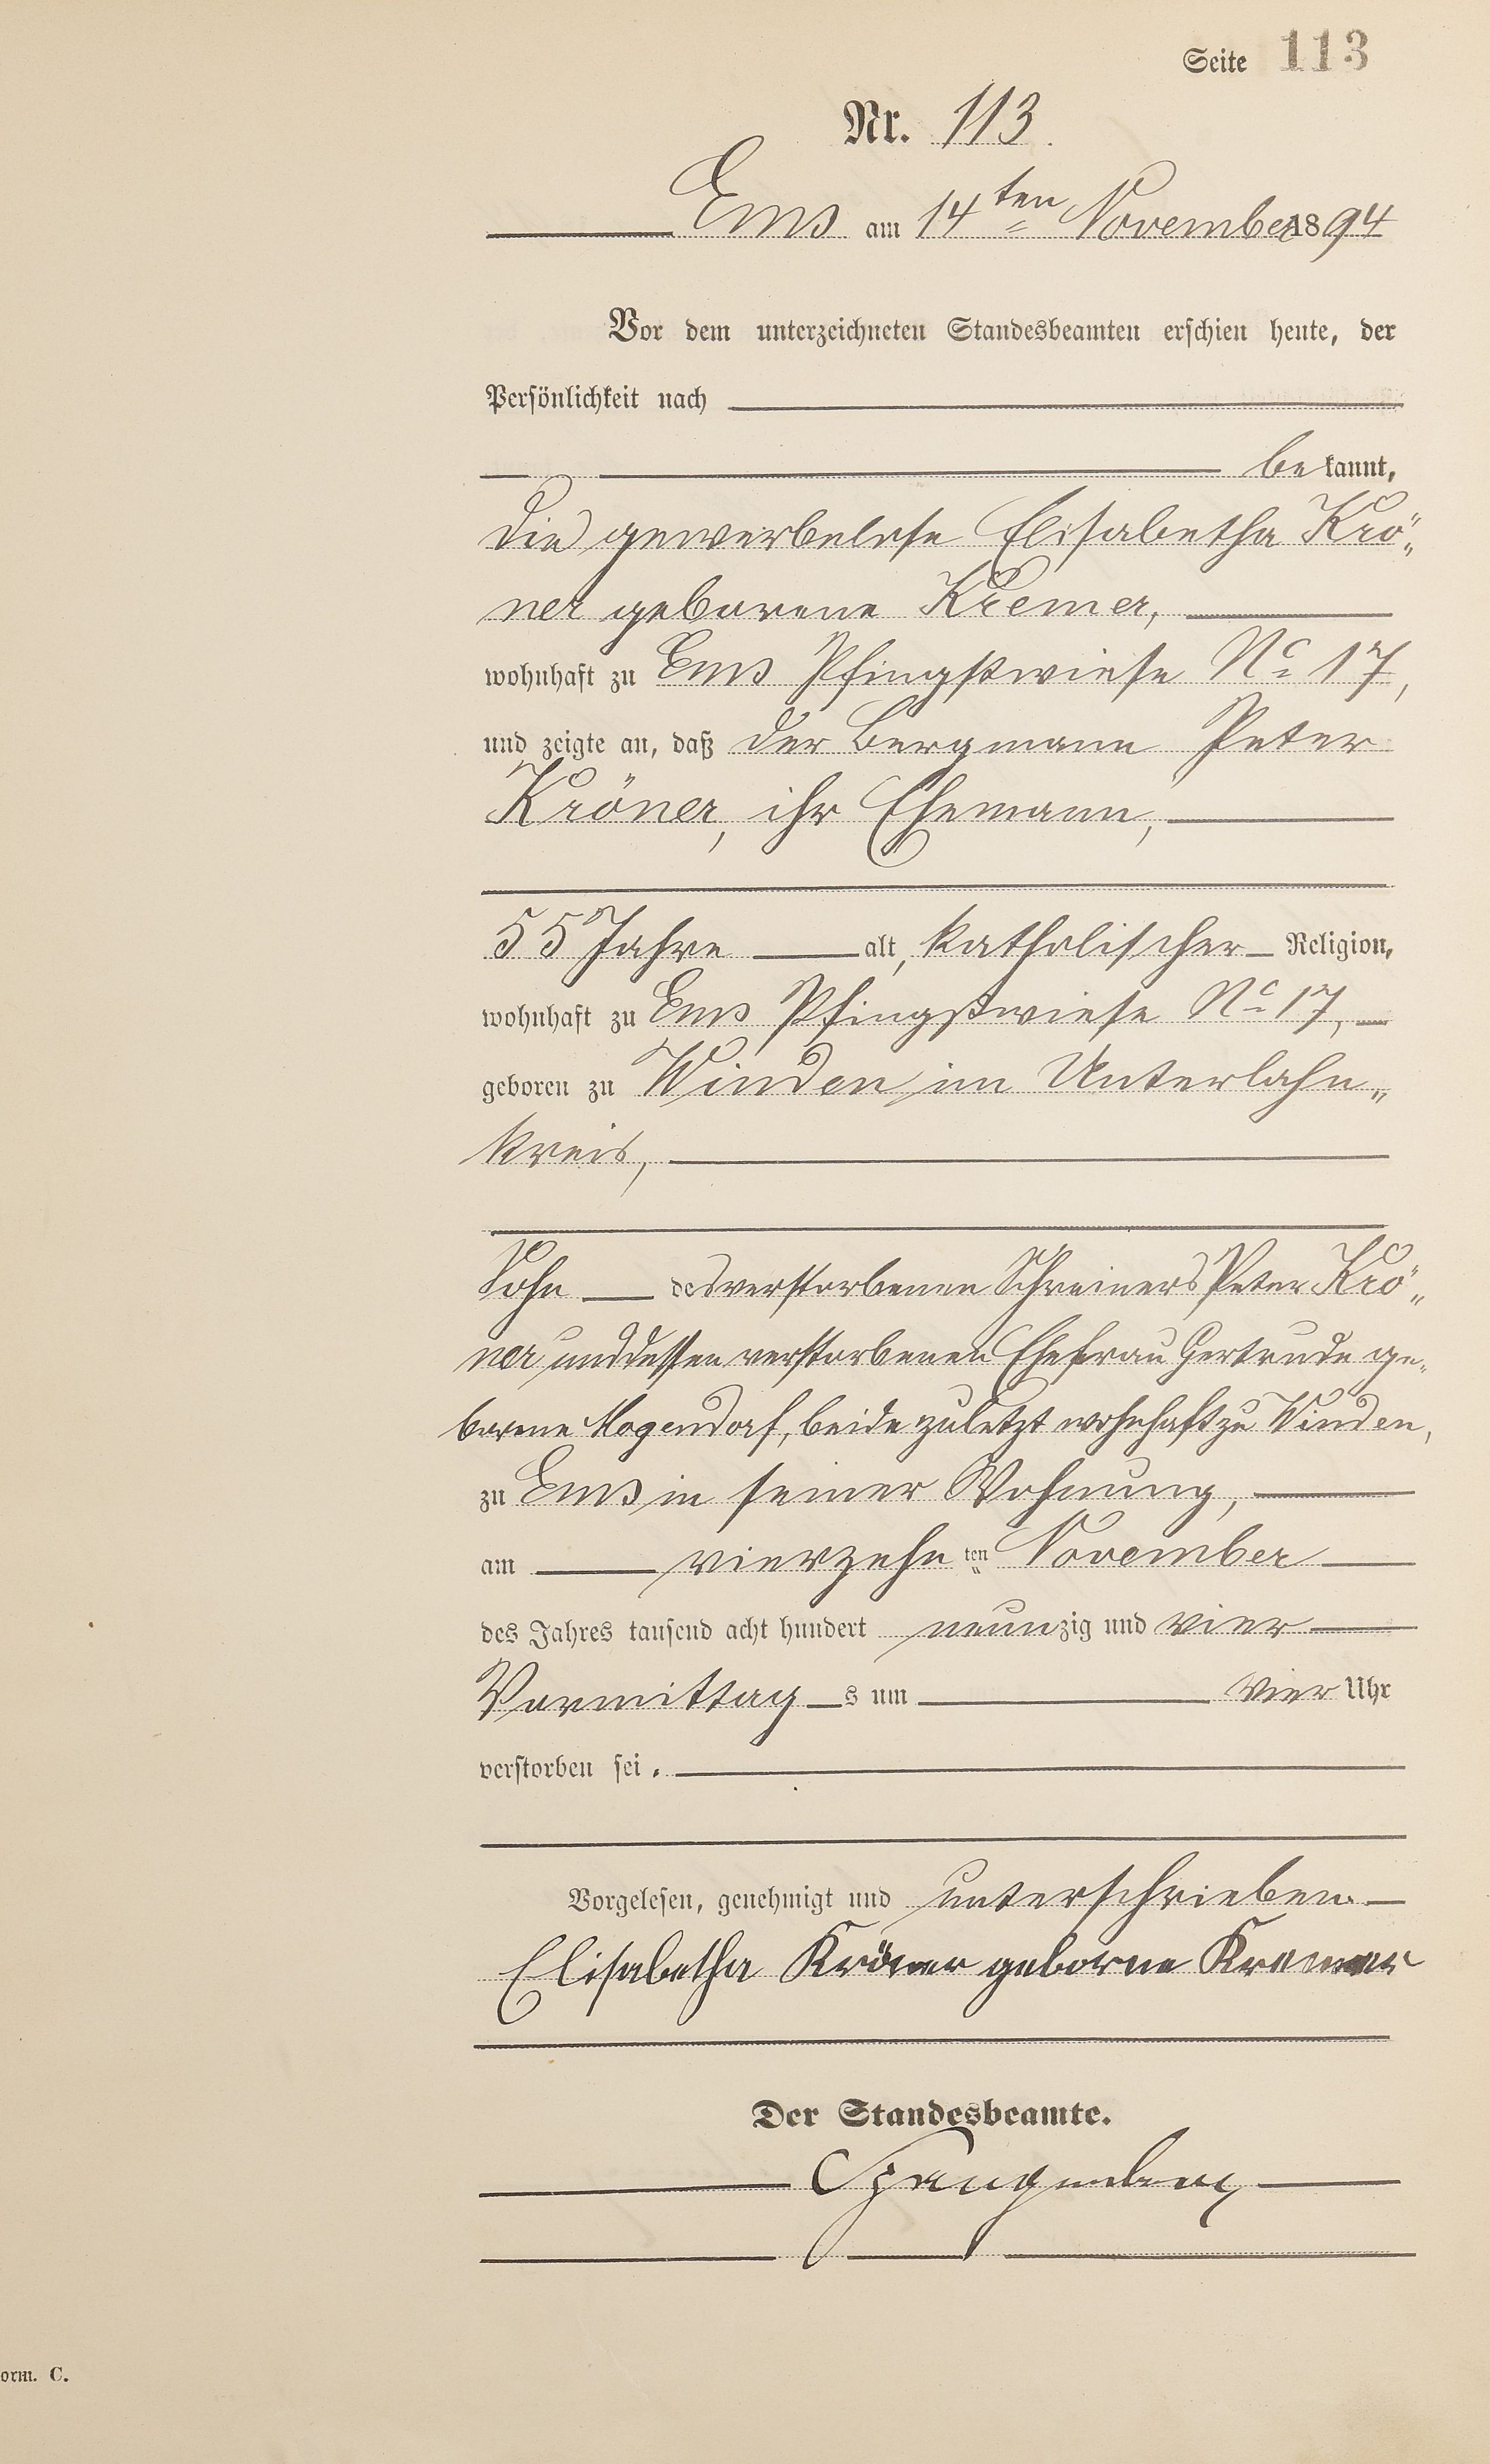 Seite 113
Nr. 113.
Ems am 14ten November 1894
Vor dem unterzeichneten Standesbeamten erschien heute, der
Persönlichkeit nach
bekannt,
die gewerbelose Elisabetha Krö„
ner geborene Kremer,
wohnhaft zu Ems Pfingstwiese No 17,
und zeigte an, daß der Bergmann Peter
Kröner, ihr Ehemann,
55 Jahre alt, katholischer Religion,
wohnhaft zu Ems Pfingstwiese No 17,
geboren zu Winden im Unterlahn„
kreis,
Sohn des verstorbenen Schreiners Peter Krö„
ner und dessen verstorbenen Ehefrau Gertrude ge„
borene Mogendorf, beide zuletzt wohnhaft zu Winden,
zu Ems in seiner Wohnung,
am vierzehnten November
des Jahres tausend acht hundert neunzig und vier
Vormittags um vier Uhr
verstorben sei.
Vorgelesen, genehmigt und unterschrieben.
Elisabetha Kröner geborne Kremer
Der Standesbeamte.
Spangenberg
orm. C.